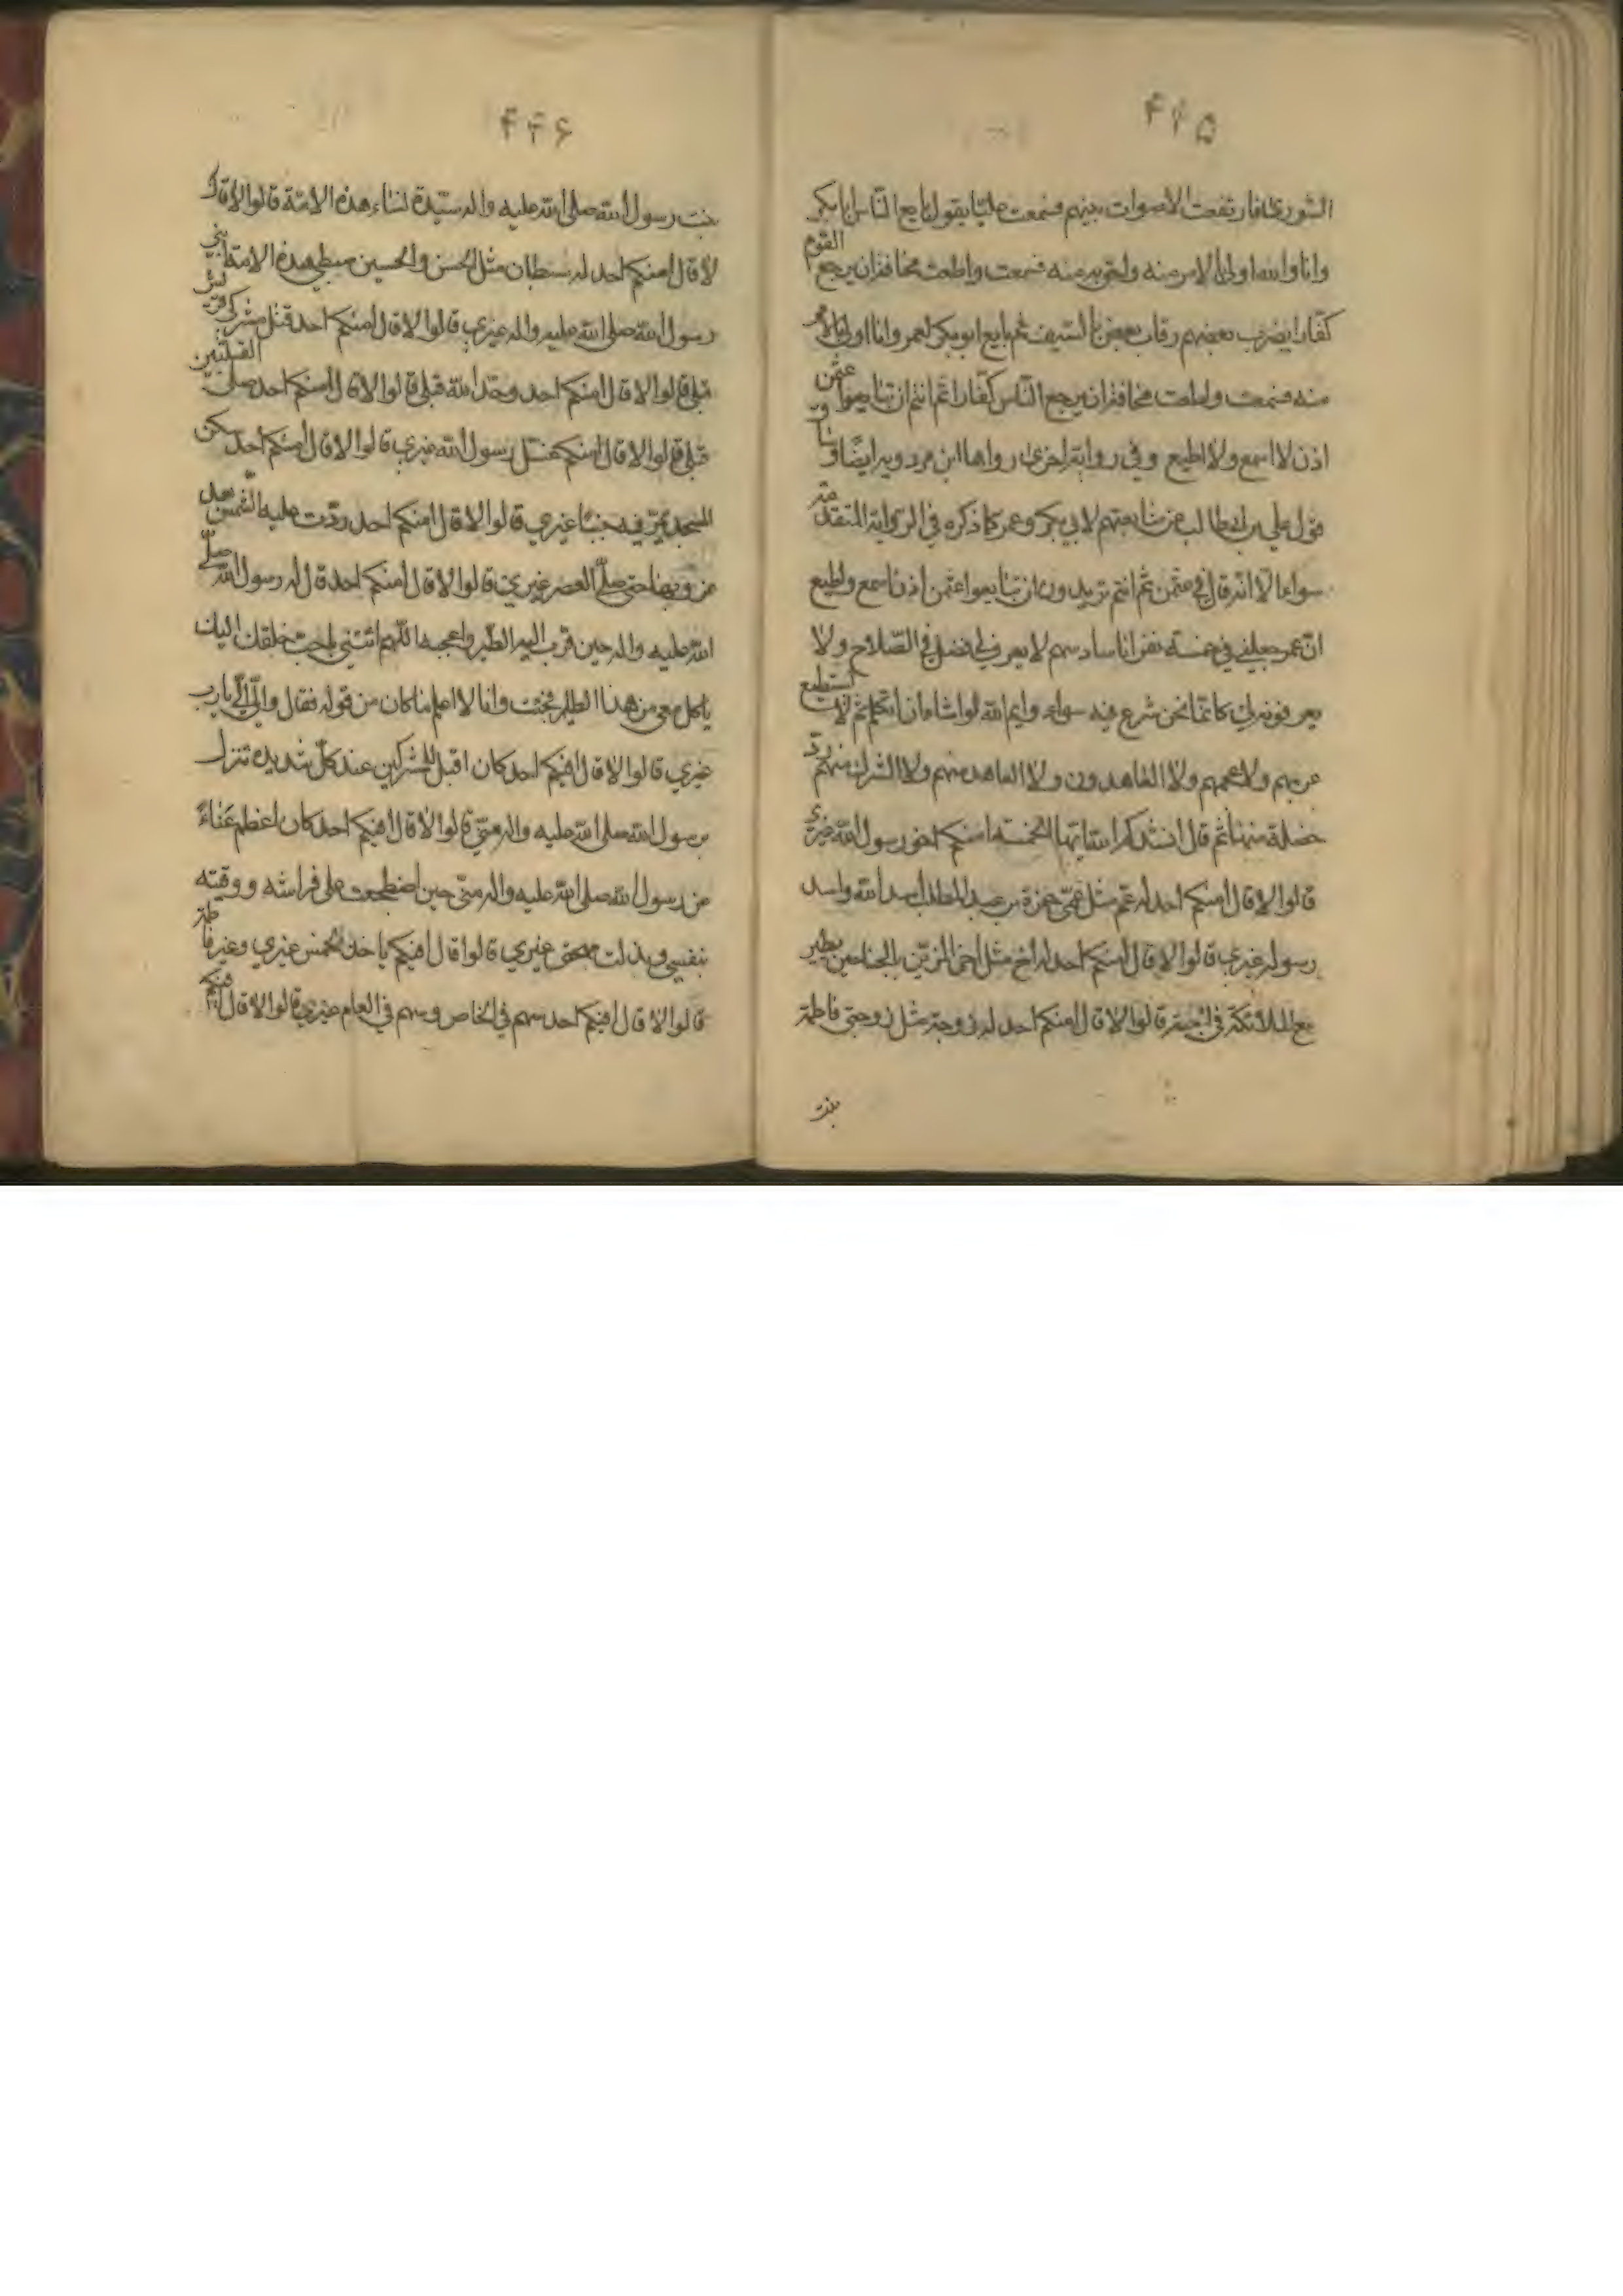 ۴۲۵
الشورى فارتفعت الاصوات بينهم فسمعت عليا يقول بايع الناس ابابكر
وانا والله اولى بالامر منه واحق به منه فسمعت واطعت مخافة ان يرجع القوم
كفارا يضرب بعضهم رقاب بعض بالسيف ثم بايع ابو بكر لعمر وانا اولى بالامر
منه فسمعت واطعت مخافة ان يرجع الناس كفارا ثم انتم ان تبايعوا عثمن
اذن لا اسمع ولا اطيع وفي رواية اخرى رواها ابن مردويه ايضا وساق
قول علي بن ابيطالب عن مبايعتهم لابي بكر وعمر كما ذكره في الرواية المتقدمة
سواء الا انه قال في عثمن ثم انتم تريدون ان تبايعوا عثمن اذن اسمع واطيع
ان عمر جعلني في خمسة نفر انا سادسهم لا يعرف لي فضل في الصلاح ولا
يعرفونه لي كانما نحن شرع فيه سواء وايم الله لو اشاء ان اتكلم ثم لا يستطيع
عربهم ولا عجمهم ولا المعاهدون ولا المعاهد منهم ولا المشرك منهم رد
خصلة منها ثم قال انشدكم الله ايتها الخمسة امنكم اخو رسول الله غيري
قالوا لا قال امنكم احد له عم مثل عمي حمزة بن عبد المطلب اسد الله واسد
رسوله غيري قالوا لا قال امنكم احد له اخ مثل اخي المزين بالجناحين يطير
مع الملائكة في الجنة قالوا لا قال امنكم احد له زوجة مثل زوجتي فاطمة
بنت
۴۲۶
بنت رسول الله صلى الله عليه واله سيدة نساء هذه الامة قالوا لا قال
لا قال امنكم احد له سبطان مثل الحسن والحسين سبطي هذه الامة ابني
رسول الله صلى الله عليه واله غيري قالوا لا قال امنكم احد قتل مشركي قريش
قبلي قالوا لا قال امنكم احد وحد الله قبلي قالوا لا قال امنكم احد صلى القبلتين
قبلي قالوا لا قال امنكم غسل رسول الله غيري قالوا لا قال امنكم احد سكن
المسجد يمر فيه جنبا غيري قالوا لا قال امنكم احد ردت عليه الشمس بعد
غروبها حتى صلى العصر غيري قالوا لا قال امنكم احد قال له رسول الله صلى
الله عليه واله حين قرب اليه الطير واعجبه اللهم ائتني باحب خلقك اليك
ياكل معي من هذا الطير فجئت وانا لا اعلم ما كان من قوله فقال والي الي يا رب
غيري قالوا لا قال افيكم احد كان اقتل للمشركين عند كل شديدة تنزل
برسول الله صلى الله عليه واله مني قالوا لا قال افيكم احد كان اعظم غناء
عن رسول الله صلى الله عليه واله مني حين اضطجعت على فراشه ووقيته
بنفسي وبذلت مهجتي غيري قالوا قال افيكم ياخذ الخمس غيري وغير فاطمة
قالوا لا قال افيكم احد سهم في الخاص وسهم في العام غيري قالوا لا قال افيكم